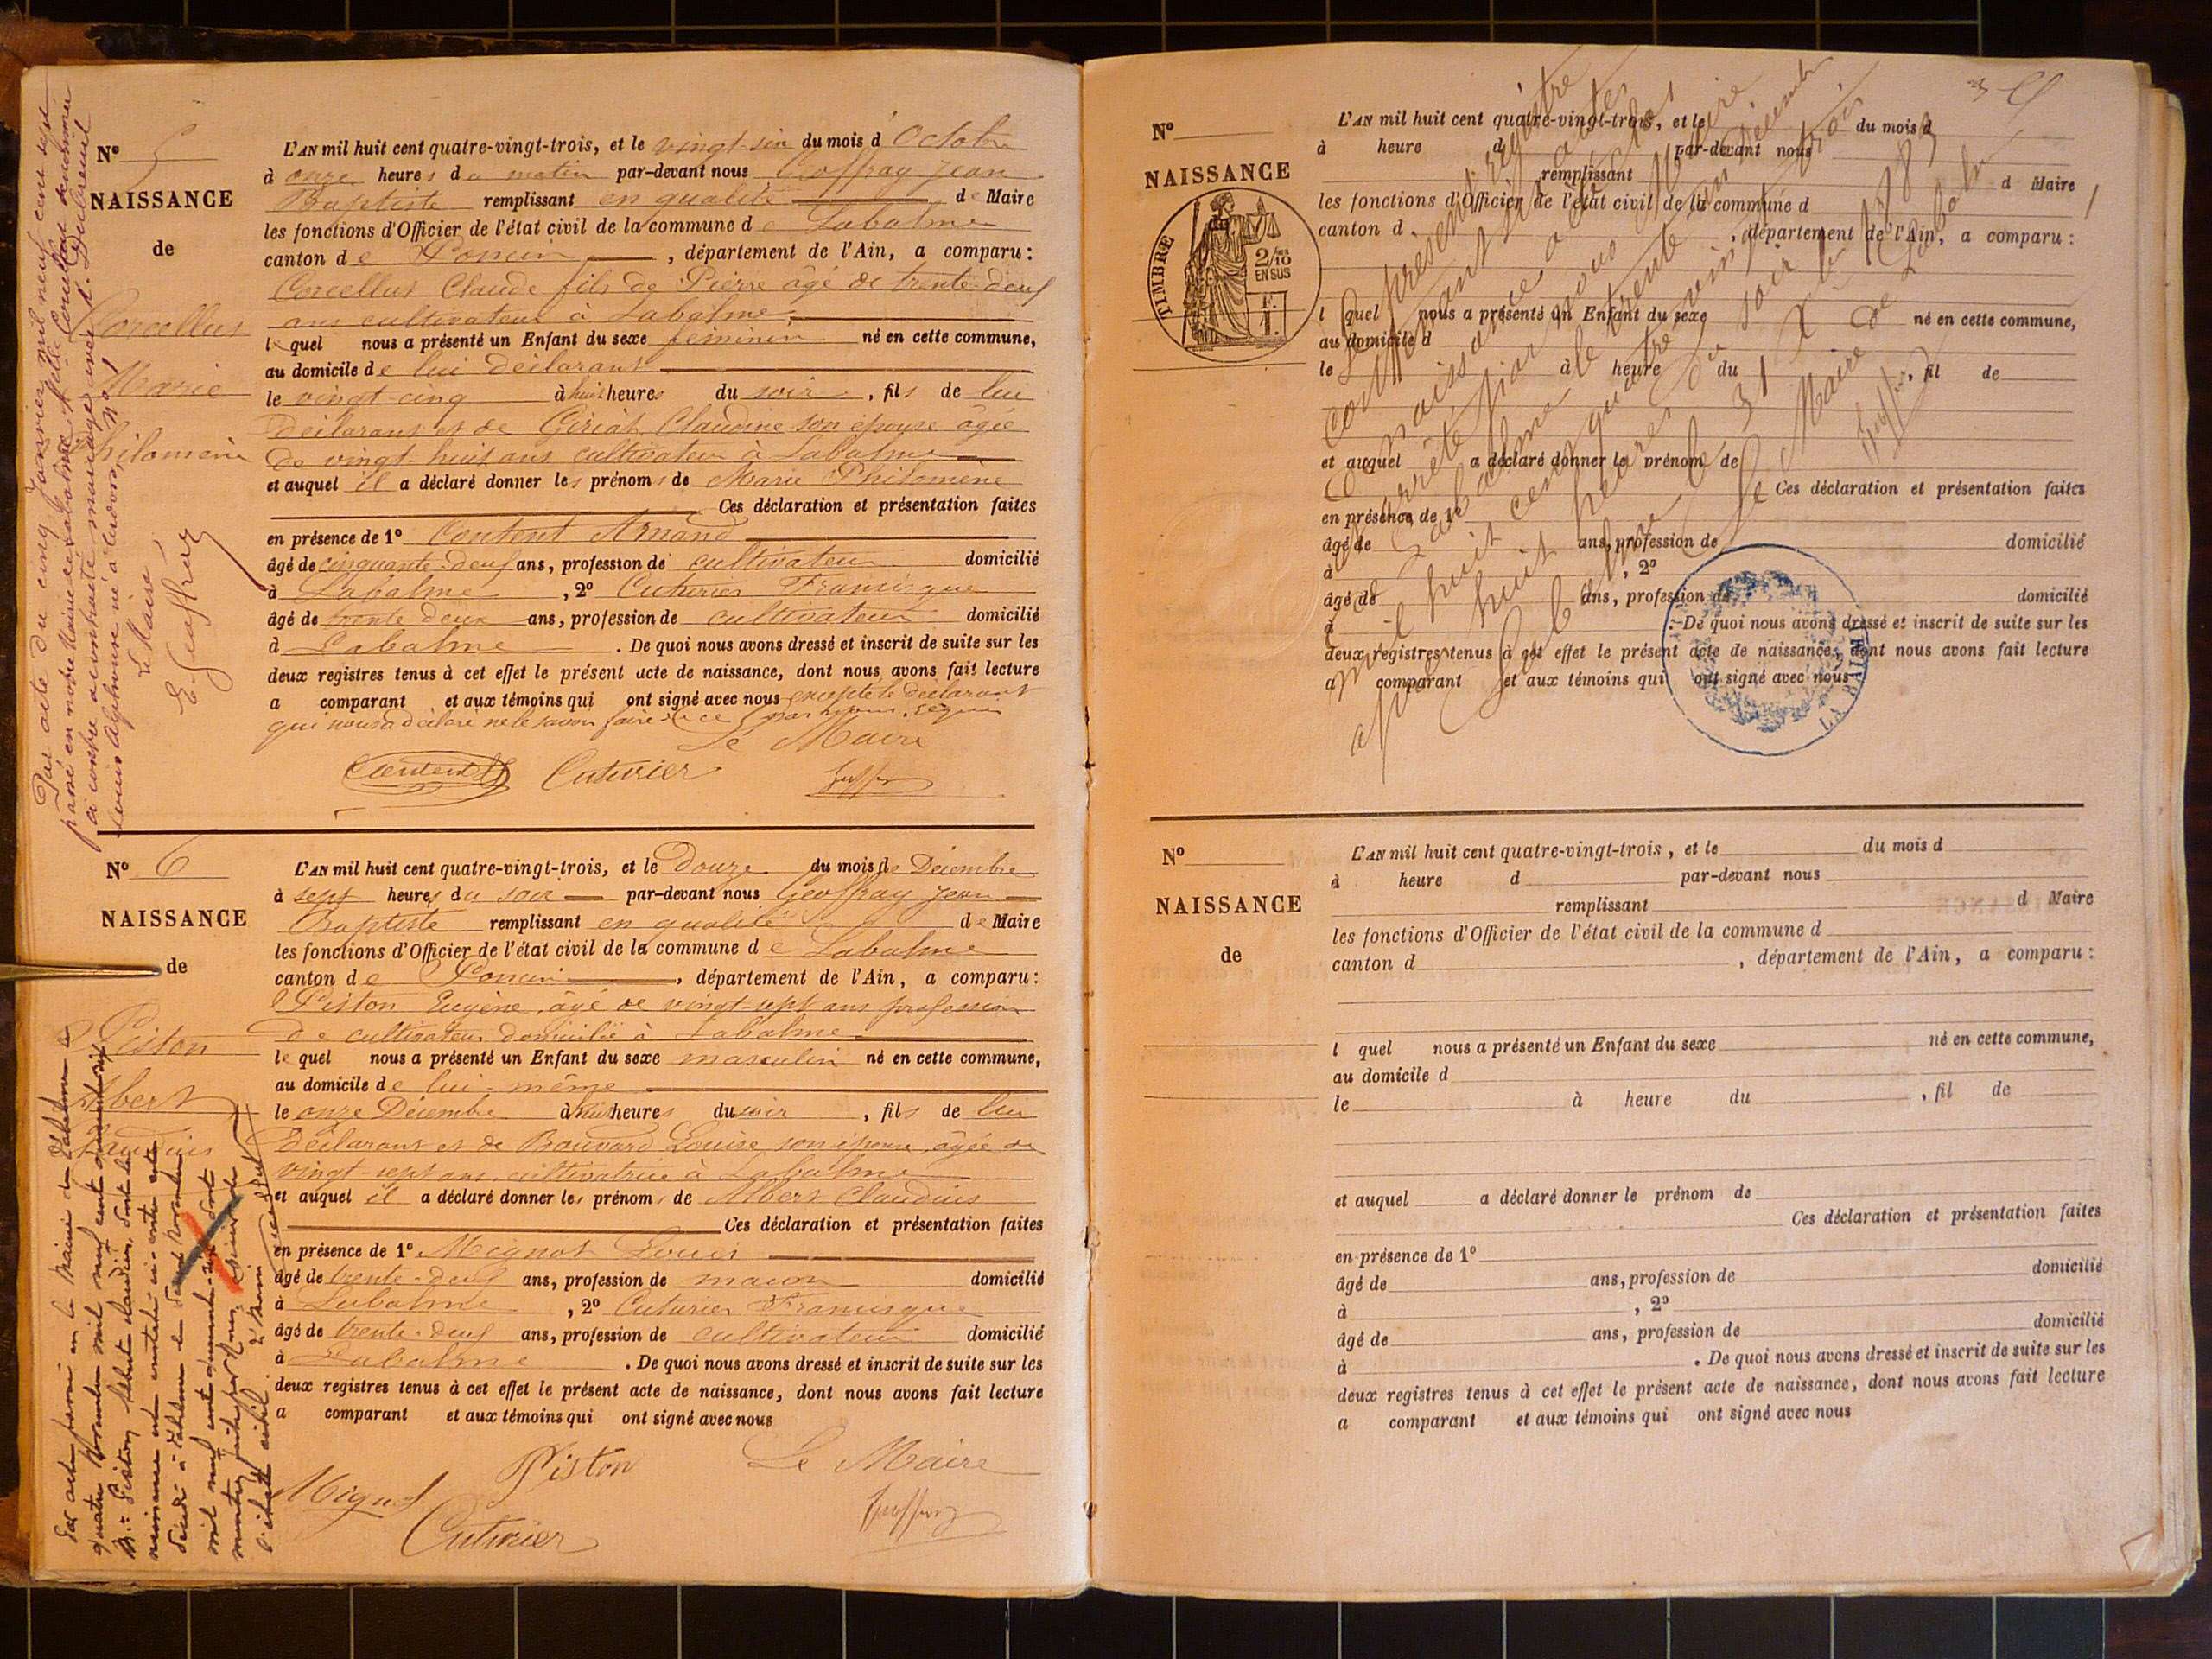 N° 5
NAISSANCE
de
Corcellus
Marie
Philomène
L'AN mil huit cent quatre-vingt-trois, et le vingt-six du mois d'Octobre
à onze heures du matin par-devant nous Geoffray Jean
Baptiste remplissant en qualité de Maire
les fonctions d'Officier de l'état civil de la commune de Labalme
canton de Poncin, département de l'Ain, a comparu:
Corcellus Claude fils de Pierre âgé de trente-deux
ans cultivateur à Labalme,
lequel nous a présenté un Enfant du sexe féminin né en cette commune,
au domicile de lui déclarant
le vingt-cinq à huit heures du soir, fils de lui
déclarant et de Giriat Claudine son épouse âgée
de vingt-huit ans cultivateur à Labalme
et auquel il a déclaré donner les prénoms de Marie Philomène
Ces déclaration et présentation faites
en présence de 1° Content Armand
âgé de cinquante-deux ans, profession de cultivateur domicilié
à Labalme, 2° Cuturier Francisque
âgé de trente deux ans, profession de cultivateur domicilié
à Labalme. De quoi nous avons dressé et inscrit de suite sur les
deux registres tenus à cet effet le présent acte de naissance, dont nous avons fait lecture
a comparant et aux témoins qui ont signé avec nous excepté le déclarant
qui nous a déclaré ne le savoir faire de ce par nous requis
Le Maire
Content Cuturier
Par acte du cinq Janvier mil neuf cent sept
passé en notre Mairie
ci contre a contracté mariage avec
Louis Alphonse né à
Le Maire
N° 6
NAISSANCE
de
Piston
Albert
Claudius
L'AN mil huit cent quatre-vingt-trois, et le douze du mois de Décembre
à sept heures du soir par-devant nous Geoffray Jean
Baptiste remplissant en qualité de Maire
les fonctions d'Officier de l'état civil de la commune de Labalme
canton de Poncin, département de l'Ain, a comparu:
Piston Eugène, âgé de vingt-sept ans profession
de cultivateur domicilié à Labalme
lequel nous a présenté un Enfant du sexe masculin né en cette commune,
au domicile de lui-même
le onze Décembre à huit heures du soir, fils de lui
déclarant et de Bouvard Louise son épouse, âgée de
vingt-sept ans, cultivatrice à Labalme
et auquel il a déclaré donner les prénoms de Albert Claudius
Ces déclaration et présentation faites
en présence de 1° Mignot Louis
âgé de trente-deux ans, profession de maçon domicilié
à Labalme, 2° Cuturier Francisque
âgé de trente-deux ans, profession de cultivateur domicilié
à Labalme. De quoi nous avons dressé et inscrit de suite sur les
deux registres tenus à cet effet le présent acte de naissance, dont nous avons fait lecture
a comparant et aux témoins qui ont signé avec nous
Piston Le Maire
Mignot
Cuturier
N°
NAISSANCE
TIMBRE
2/10
EN SUS
L'AN mil huit cent quatre-vingt-trois, et le du mois d
à heure d par-devant nous
remplissant d Maire
les fonctions d'Officier de l'état civil de la commune d
canton d, département de l'Ain, a comparu:
l quel nous a présenté un Enfant du sexe né en cette commune,
au domicile d
le à heure du, fil de
et auquel a déclaré donner le prénom de
Ces déclaration et présentation faites
en présence de 1°
âgé de ans, profession de domicilié
à, 2°
âgé de ans, profession de domicilié
à. De quoi nous avons dressé et inscrit de suite sur les
deux registres tenus à cet effet le présent acte de naissance, dont nous avons fait lecture
a comparant et aux témoins qui ont signé avec nous
Le présent registre
contenant six actes
de naissance a été clos
et arrêté par nous Maire
de Labalme le trente un décembre
mil huit cent quatre vingt trois
après huit heures du soir
Labalme le 31 Xbre 1883
Le Maire de Labalme
N°
NAISSANCE
de
L'AN mil huit cent quatre-vingt-trois, et le du mois d
à heure d par-devant nous
remplissant d Maire
les fonctions d'Officier de l'état civil de la commune d
canton d, département de l'Ain, a comparu:
l quel nous a présenté un Enfant du sexe né en cette commune,
au domicile d
le à heure du, fil de
et auquel a déclaré donner le prénom de
Ces déclaration et présentation faites
en présence de 1°
âgé de ans, profession de domicilié
à, 2°
âgé de ans, profession de domicilié
à. De quoi nous avons dressé et inscrit de suite sur les
deux registres tenus à cet effet le présent acte de naissance, dont nous avons fait lecture
a comparant et aux témoins qui ont signé avec nous